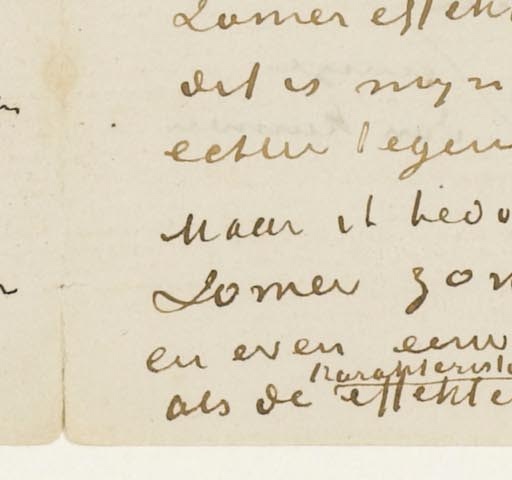 Zomer effekt
dit is myn
echter tegen
Maar ik bedo
Zomer zon
en even een
karakterist
als de effekte